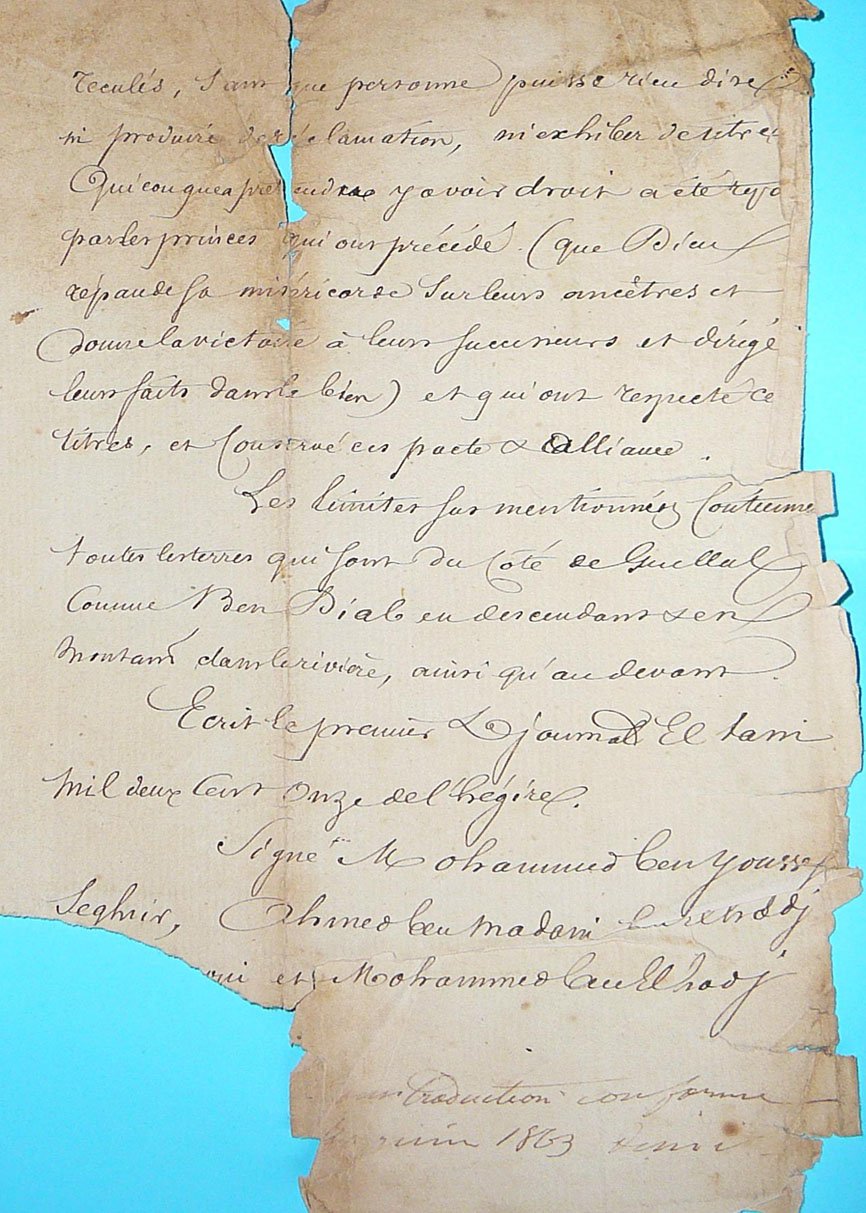 reculés, sans que personne puisse rien dire
ni produire de réclamation, ni exhiber de titres
Quiconque a prétendre y avoir droit a été repo
par les princes qui ont précédé (que Dieu
répande sa miséricorde sur leurs ancêtres et
donne la victoire à leurs successeurs et dirige
leurs faits dans le bien) et qui ont respecté ce
titres, et conservé ces pacte & alliance.
Les limites sus mentionnées Contienne
toutes les terres qui sont du Côté de Guellal
Comme Ben Diab en descendant & en
Montant dans la rivière, ainsi qu'au devant.
Ecrit le premier Djoumad El tani
Mil deux Cent Onze de l'hégire.
Signé Mohammed ben Yousse
Seghir, Ahmed ben Madani
et Mohammed ben El hadj
traduction conforme
juin 1863